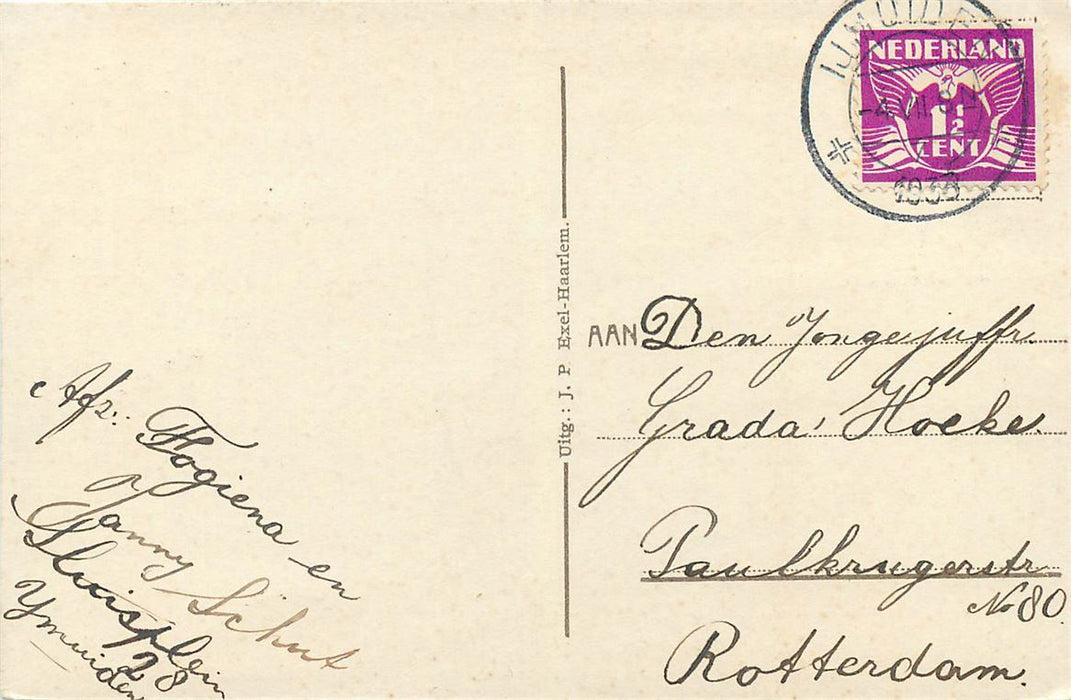 IJMUIDEN
-4.VII
1933
NEDERLAND
1½
CENT
Uitg.: J. P. Exel-Haarlem.
AAN Den Jongejuffr.
Grada Hoeke.
Paulkrugerstr
No 80.
Rotterdam.
Afz.:
Hogiena en
Janny Schut
Sluisplein
28
Ymuiden